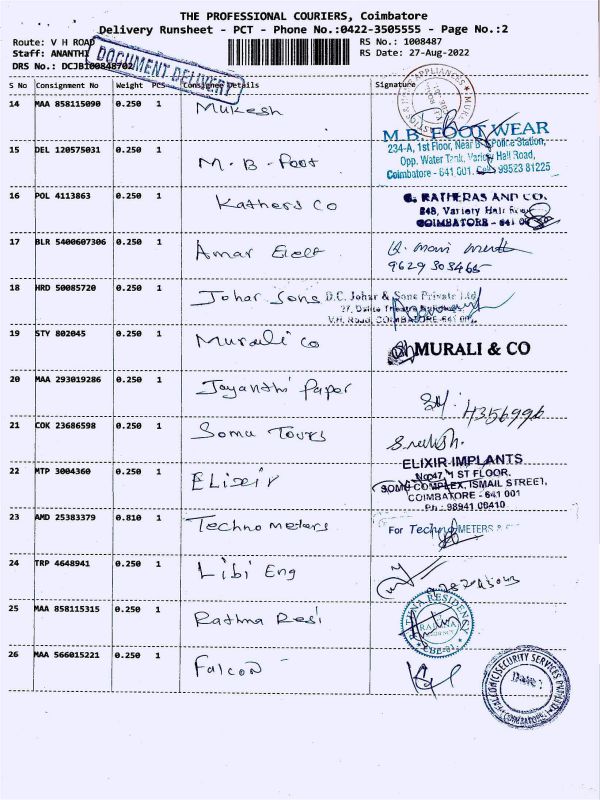 THE PROFESSIONAL COURIERS, Coimbatore
Delivery Runsheet - PCT - Phone No.:0422-3505555 - Page No.:2
Route: V H ROAD
RS No.: 1008487
Staff: ANANTHI
RS Date: 27-Aug-2022
DRS No.: DCJB100848702
DOCUMENT DELIVERY
S No Consignment No Weight PCS Consignee Details Signature
14 MAA 858115090 0.250 1 Mukesh
15 DEL 120575031 0.250 1 M. B - Foot
M.B. FOOT WEAR
234-A, 1st Floor, Near B Police Station,
Opp. Water Tank, Variety Hall Road,
Coimbatore - 641 001. Cell 99523 81225
16 POL 4113863 0.250 1 Katherd Co
RATHERAS AND CO.
848, Variety Hall Road
COIMBATORE - 641
17 BLR 5400607306 0.250 1 Amar Elect
9629303465
18 HRD 50085720 0.250 1 Johar Sons
D.C. Johar & Sons Private Ltd
27,
V.H. Road, COIMBATORE-641
19 STY 802045 0.250 1 Murali Co
MURALI & CO
20 MAA 293019286 0.250 1 Jayanthi Paper
4356996
21 COK 23686598 0.250 1 Soma Tours
22 MTP 3004360 0.250 1 ELixir
ELIXIR IMPLANTS
No:47, 1 ST FLOOR,
SOMA COMPLEX, ISMAIL STREET,
COIMBATORE - 641 001
Ph : 98941 00410
23 AMD 25383379 0.810 1 Techno meters
For Techno METERS &
24 TRP 4648941 0.250 1 Libi Eng
25 MAA 858115315 0.250 1 Rathna Resi
RATHNA RESIDENCY
CBE-01
26 MAA 566015221 0.250 1 Falcon
SECURITY SERVICES
COIMBATORE